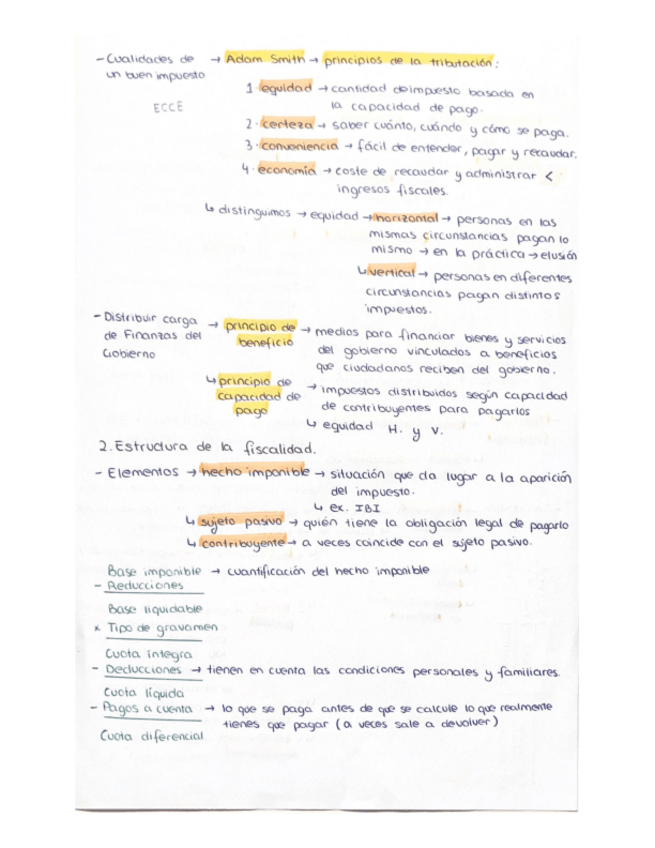 - Cualidades de → Adam Smith → principios de la tributación:
un buen impuesto
1. equidad → cantidad de impuesto basada en
ECCE
la capacidad de pago.
2. certeza → saber cuánto, cuándo y cómo se paga.
3. conveniencia → fácil de entender, pagar y recaudar.
4. economía → coste de recaudar y administrar <
ingresos fiscales.
↳ distinguimos → equidad → horizontal → personas en las
mismas circunstancias pagan lo
mismo → en la práctica → elusión
↳ vertical → personas en diferentes
circunstancias pagan distintos
impuestos.
- Distribuir carga
de Finanzas del
Gobierno
→ principio de
beneficio
→ medios para financiar bienes y servicios
del gobierno vinculados a beneficios
que ciudadanos reciben del gobierno.
↳ principio de
capacidad de
pago
→ impuestos distribuidos según capacidad
de contribuyentes para pagarlos
↳ equidad H. y V.
2. Estructura de la fiscalidad.
- Elementos → hecho imponible → situación que da lugar a la aparición
del impuesto.
↳ ex. IBI
↳ sujeto pasivo → quién tiene la obligación legal de pagarlo
↳ contribuyente → a veces coincide con el sujeto pasivo.
Base imponible → cuantificación del hecho imponible
- Reducciones
Base liquidable
x Tipo de gravamen
Cuota íntegra
- Deducciones → tienen en cuenta las condiciones personales y familiares.
Cuota líquida
- Pagos a cuenta → lo que se paga antes de que se calcule lo que realmente
tienes que pagar (a veces sale a devolver)
Cuota diferencial